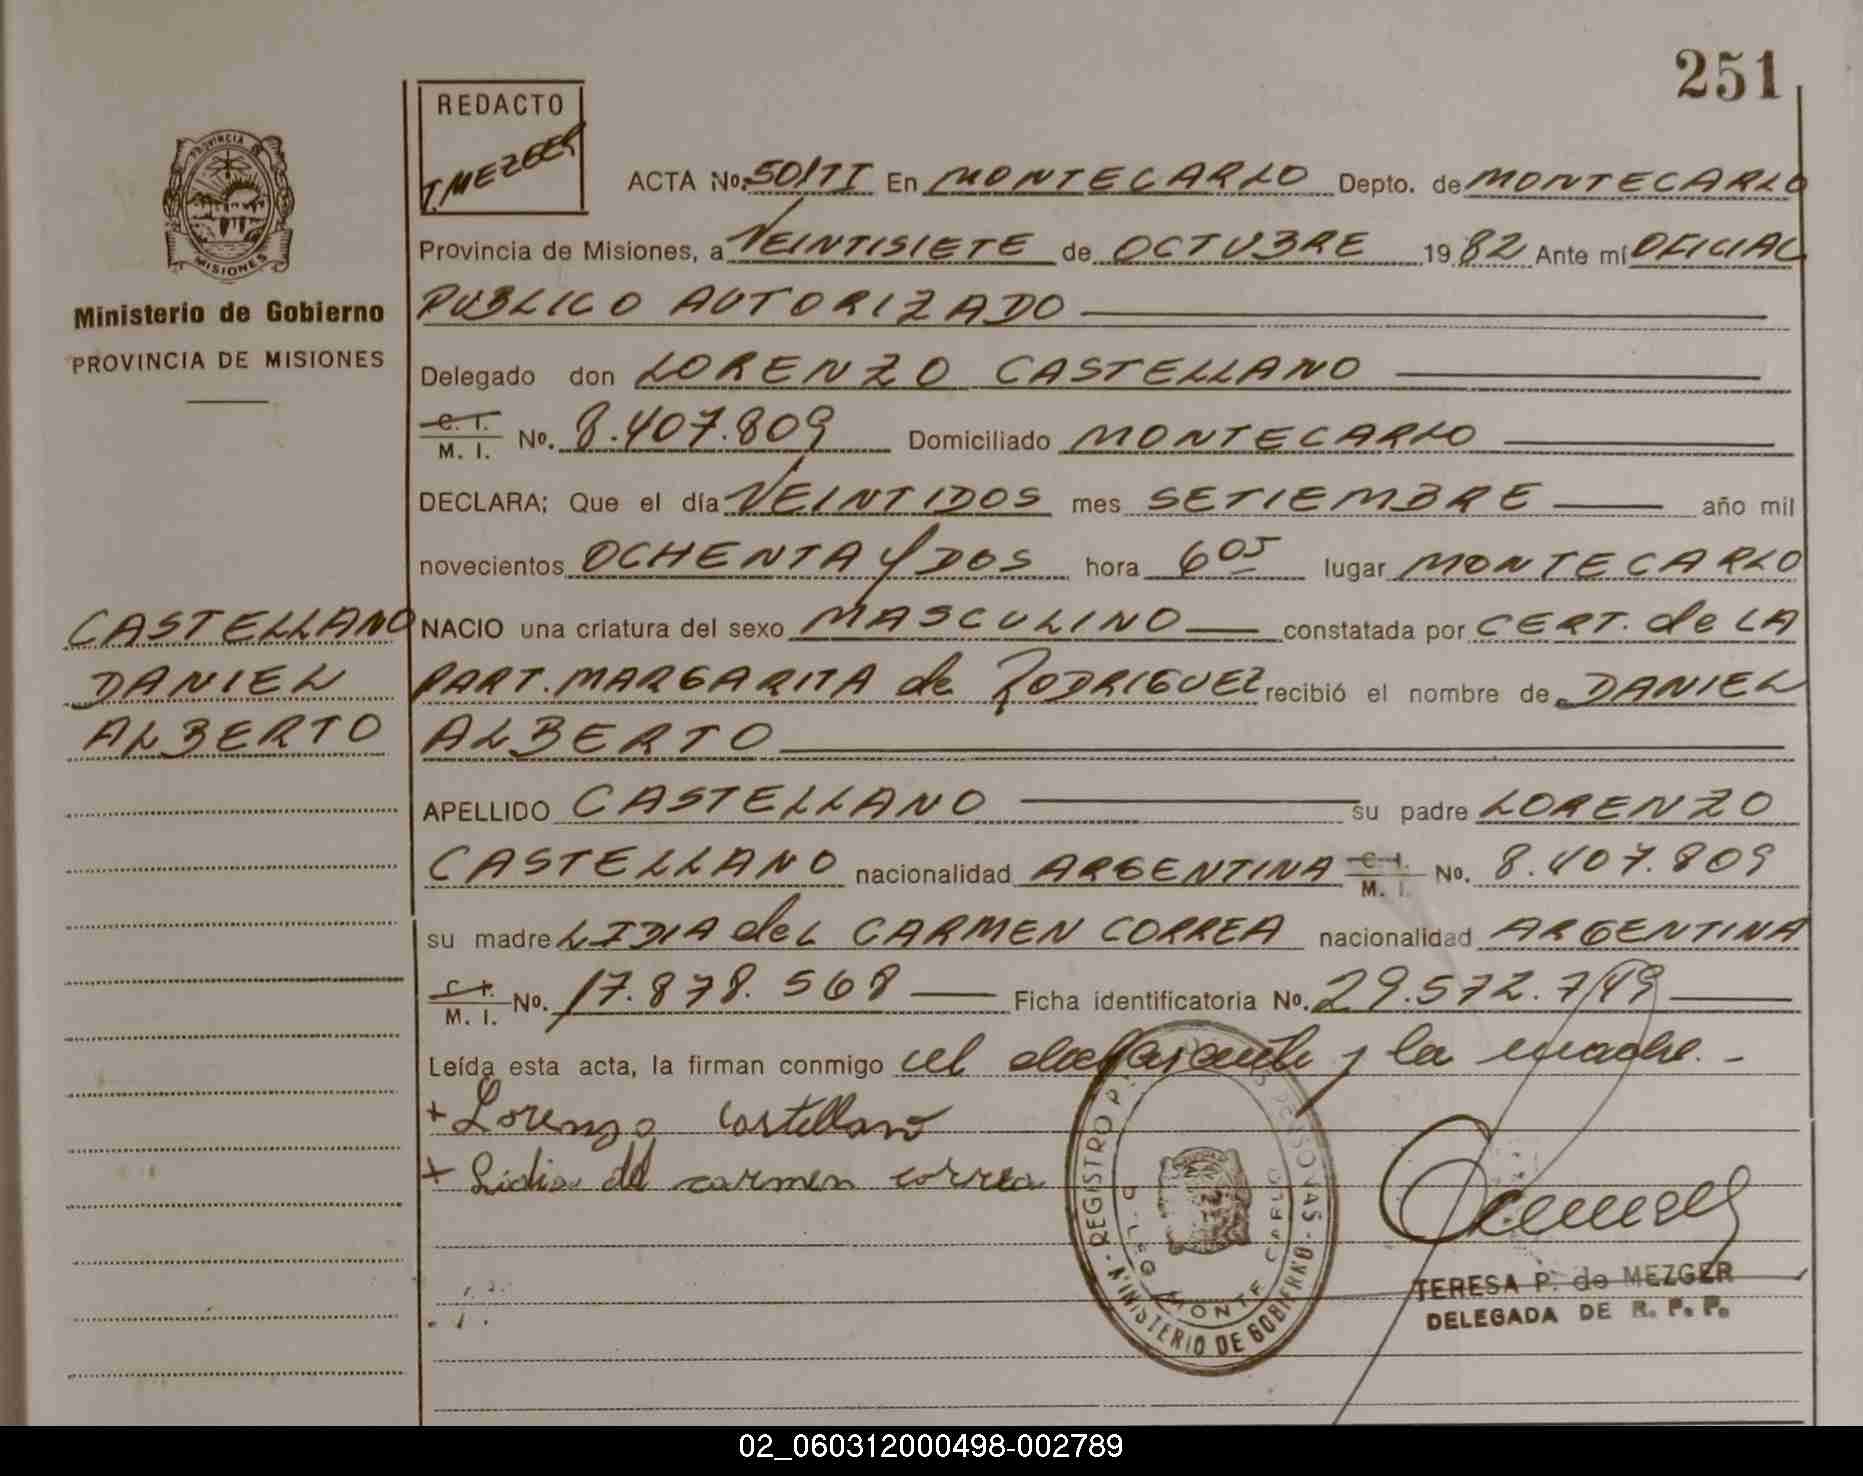 251
REDACTO
T. MEZGER
PROVINCIA
MISIONES
ACTA No. 50/TI En MONTECARLO Depto. de MONTECARLO
Provincia de Misiones, a VEINTISIETE de OCTUBRE 1982 Ante mí OFICIAL
PUBLICO AUTORIZADO
Ministerio de Gobierno
PROVINCIA DE MISIONES
Delegado don LORENZO CASTELLANO
C. I.
M. I. No. 8.407.809 Domiciliado MONTECARLO
DECLARA; Que el día VEINTIDOS mes SETIEMBRE año mil
novecientos OCHENTA y DOS hora 6 05 lugar MONTECARLO
CASTELLANO
DANIEL
ALBERTO
NACIO una criatura del sexo MASCULINO constatada por CERT. de LA
PART. MARGARITA de RODRIGUEZ recibió el nombre de DANIEL
ALBERTO
APELLIDO CASTELLANO su padre LORENZO
CASTELLANO nacionalidad ARGENTINA C. I. M. I. No. 8.407.809
su madre LIDIA del CARMEN CORREA nacionalidad ARGENTINA
C. I.
M. I. No. 17.878.568 Ficha identificatoria No. 29.572.749
Leída esta acta, la firman conmigo el declarante y la madre.-
+ Lorenzo Castellano
+ Lidia del carmen correa
REGISTRO P. DE LAS PERSONAS - MINISTERIO DE GOBIERNO -
DELEG. MONTE CARLO
TERESA P. de MEZGER
DELEGADA DE R. P. P.
02_060312000498-002789